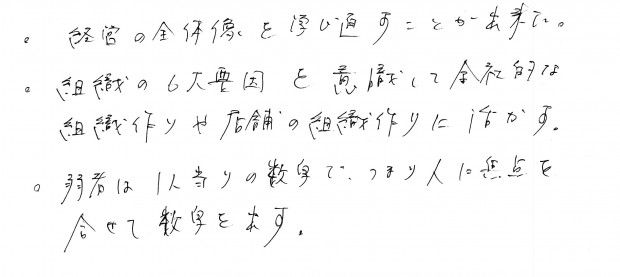 。経営の全体像を学び通すことが出来た。
。組織の6大要因を意識して全社的な
組織作りや店舗の組織作りに活かす。
。弱者は1人当りの数字で、つまり人に焦点を
合せて数字を出す。